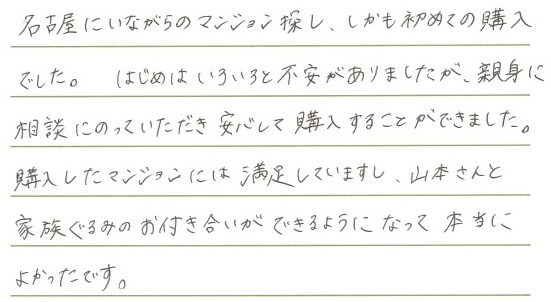 名古屋にいながらのマンション探し、しかも初めての購入
でした。 はじめはいろいろと不安がありましたが、親身に
相談にのっていただき安心して購入することができました。
購入したマンションには満足していますし、山本さんと
家族ぐるみのお付き合いができるようになって本当に
よかったです。